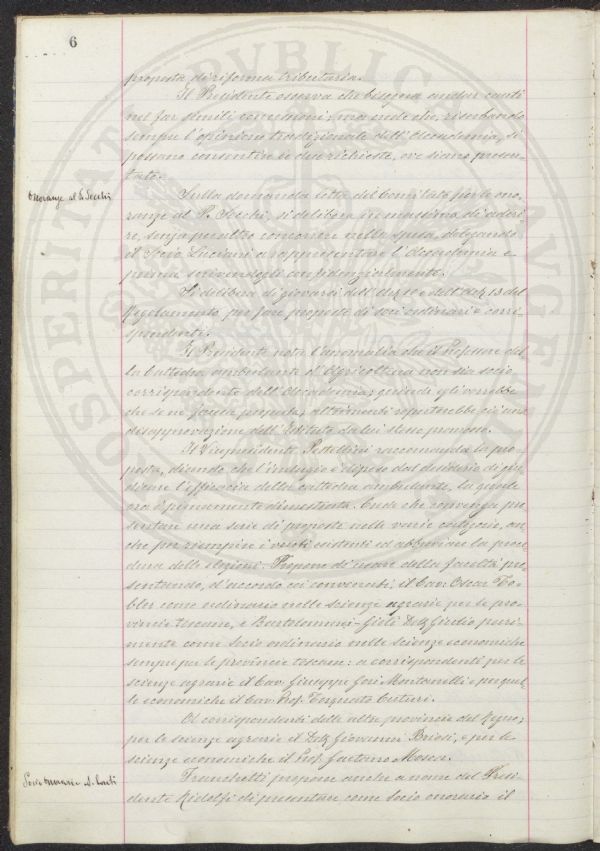 6
proposta di riforma tributaria.
Il Presidente osserva che bisogna andar cauti
nel far simili concessioni; ma crede che, riserbando
sempre l'opinione tradizionale dell'Accademia, si
possano consentire le due richieste, ove siano presen-
tate.
Onoranze al P. Secchi
Sulla domanda fatta dal Comitato per le ono-
ranze al P. Secchi, si delibera in massima di aderi-
re, senza peraltro concorrere nella spesa, delegando
il Socio Luciani a rappresentare l'Accademia e
prima scrivendogli confidenzialmente.
Si delibera di giovarsi dell'Art. 10 e dell'Art. 13 del
Regolamento per fare proposte di soci ordinari e corri-
spondenti.
Il Presidente nota l'anomalia che il Professore del-
la Cattedra ambulante d'Agricoltura non sia socio
corrispondente dell'Accademia; quindi egli vorrebbe
che se ne facesse proposta; altrimenti sembrerebbe una
disapprovazione dell'Istituto da lei stessa promosso.
Il Vicepresidente Pestellini raccomanda la pro-
posta, dicendo che l'indugio è dipeso dal desiderio di giu-
dicare l'efficacia della cattedra ambulante, la quale
ora è pienamente dimostrata. Crede che convenga pre-
sentare una serie di proposte nelle varie categorie, an-
che per riempire i vuoti esistenti ed abbreviare la proce-
dura delle elezioni. Propone di usare della facoltà, pre-
sentando, d'accordo coi convocati, il Cav. Oscar To-
bler come ordinario nelle scienze agrarie per le pro-
vincie toscane, e Bartolommei-Gioli Dott. Guido pari-
mente come socio ordinario nelle scienze economiche
sempre per le provincie toscane: a corrispondenti per le
scienze agrarie il Cav. Giuseppe Gori Montanelli e per quel-
le economiche il Cav. Prof. Torquato Cuturi.
A corrispondenti delle altre provincie del Regno,
per le scienze agrarie il Dott. Giovanni Briosi, e per le
scienze economiche il Prof. Gaetano Mosca.
Franchetti propone anche a nome del Presi-
dente Ridolfi di presentare come Socio onorario il